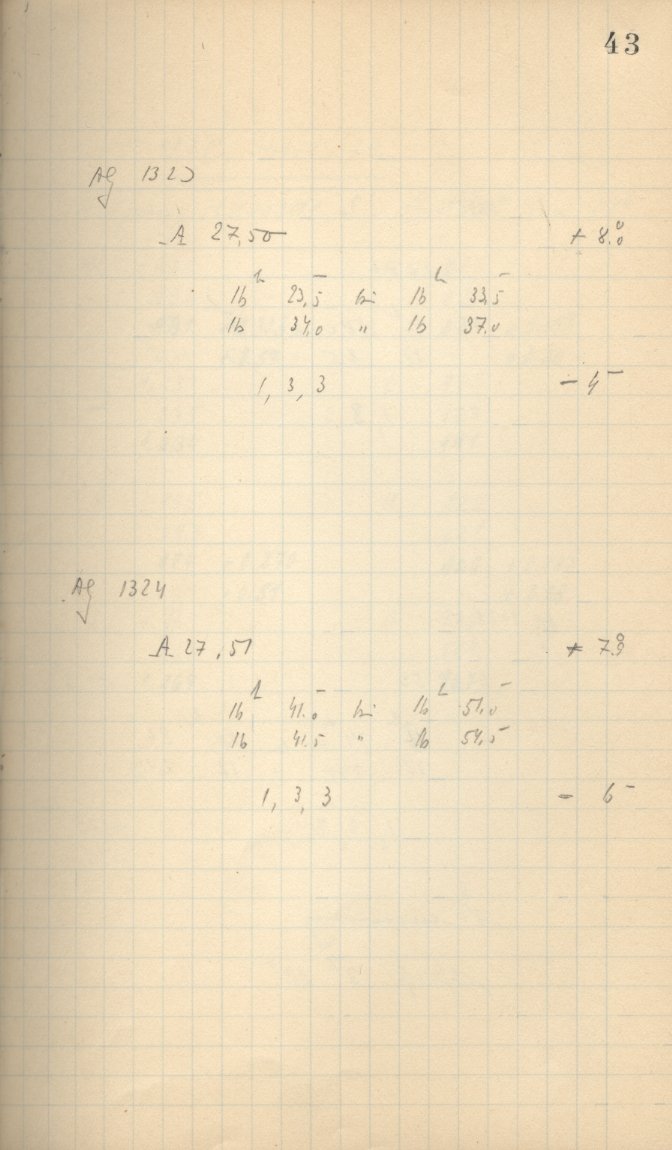 43
Ag 1323
A 27,50 + 8.°0
16ʰ 23,5⁻ bis 16ʰ 33,5⁻
16 34,0 " 16 37,0
1, 3, 3 - 4⁻
Ag 1324
A 27,51 + 7.°9
16ʰ 41,0⁻ bis 16ʰ 51,0⁻
16 41,5 " 16 54,5
1, 3, 3 - 6⁻